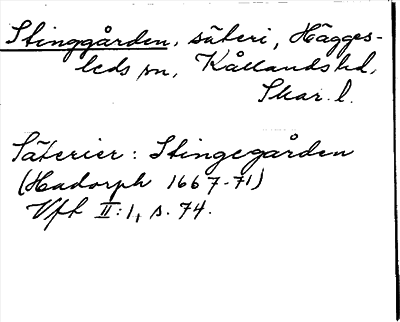 Stinggården, säteri, Hägges-
leds sn, Kållands hd,
Skar. l.
Säterier: Stingegården
(Hadorph 1667-71)
Vft II:1, s. 74.